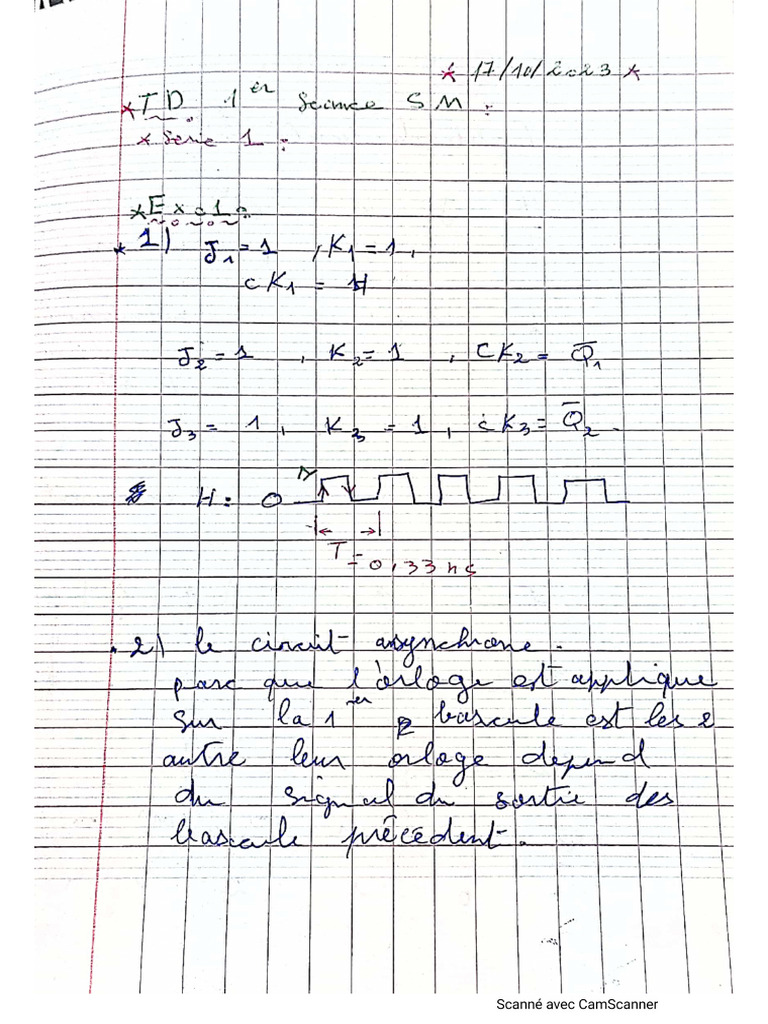 * 17/10/2023 *
* TD 1er Science SM :
* Serie 1 :
* Exo 1 :
* 1) J1 = 1 , K1 = 1 ,
CK1 = H
J2 = 1 , K2 = 1 , CK2 = Q̅1
J3 = 1 , K3 = 1 , CK3 = Q̅2 .
H : 0
T = 0,33 ns
. 2) le circuit asynchrone .
parc que l'orloge est applique
sur la 1er bascule est les 2
autre leur orloge depend
du signal du sortie des
bascule précédent .
Scanné avec CamScanner